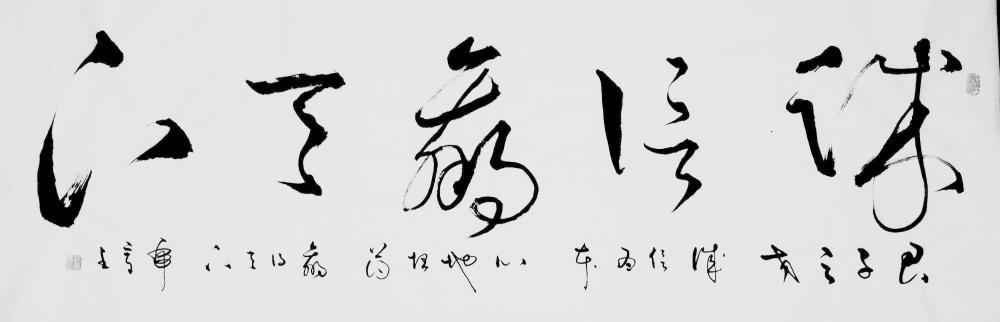 诚信赢天下
君子之交 诚信为本 心地坦荡 赢得天下